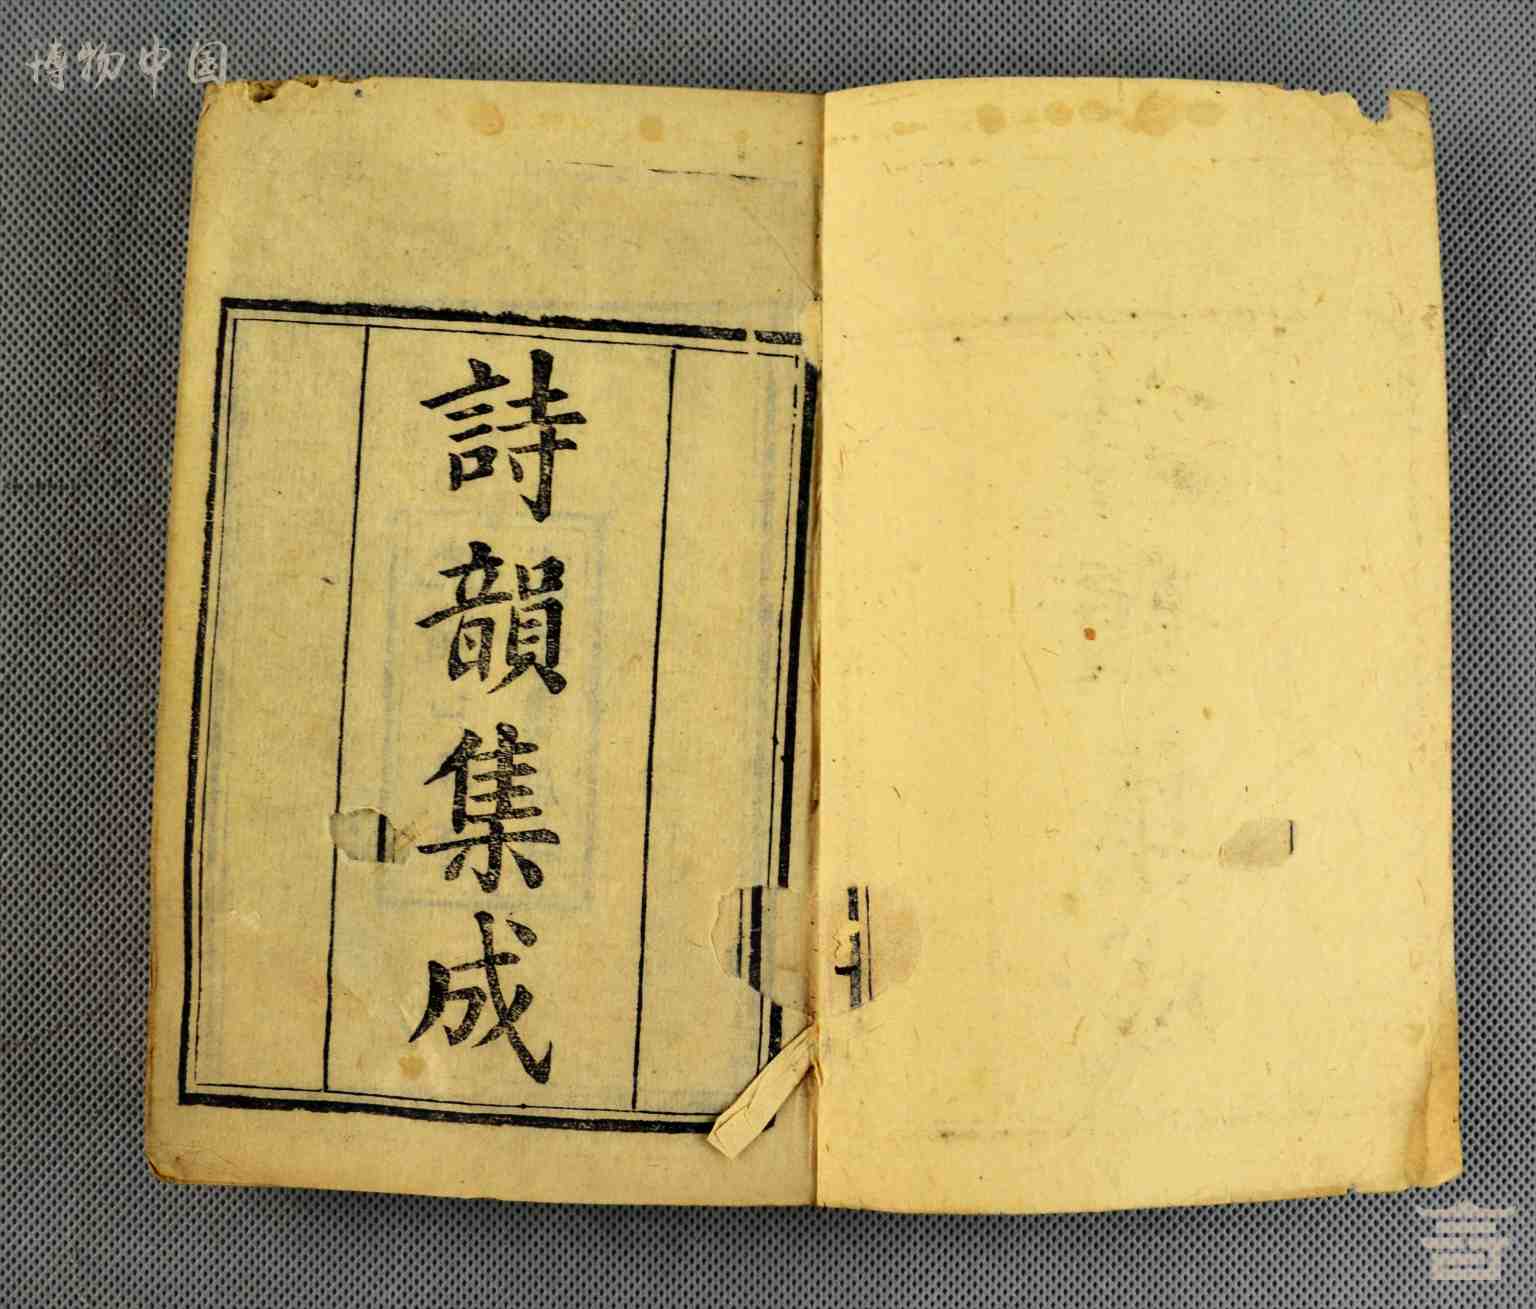 博物中国
詩韻集成